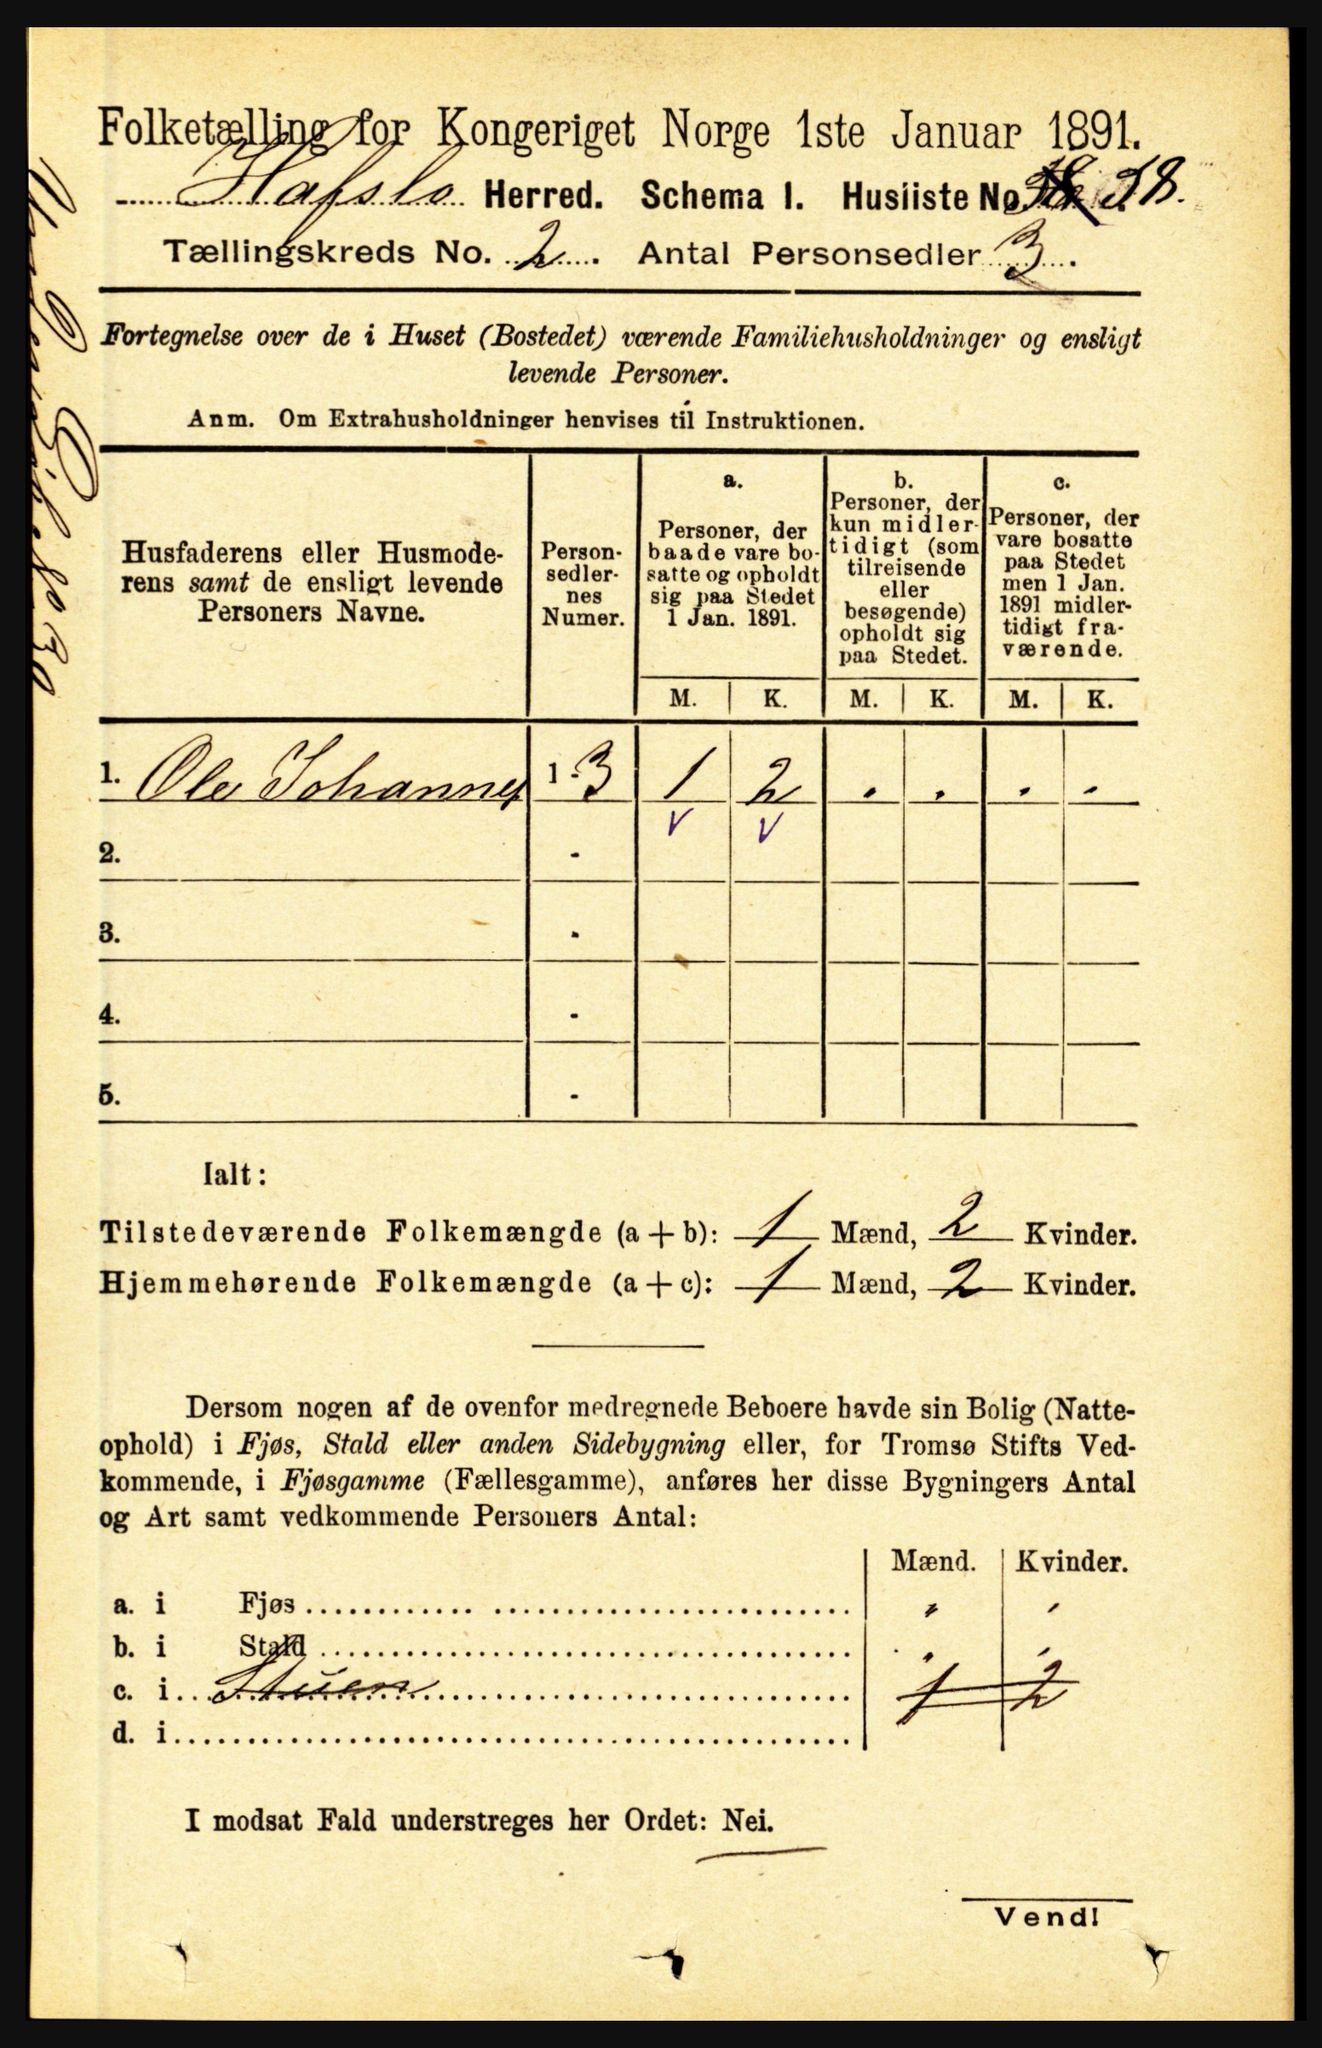 Folketælling for Kongeriget Norge 1ste Januar 1891.
Hafslo Herred. Schema I. Husliste No. 38.
Tællingskreds No. 2. Antal Personsedler 3.
Fortegnelse over de i Huset (Bostedet) værende Familiehusholdninger og ensligt
levende Personer.
Anm. Om Extrahusholdninger henvises til Instruktionen.
Husfaderens eller Husmode-
rens samt de ensligt levende
Personers Navne.
Person-
sedler-
nes
Numer.
a.
Personer, der
baade vare bo-
satte og opholdt
sig paa Stedet
1 Jan. 1891.
b.
Personer, der
kun midler-
tidigt (som
tilreisende
eller
besøgende)
opholdt sig
paa Stedet.
c.
Personer, der
vare bosatte
paa Stedet
men 1 Jan.
1891 midler-
tidigt fra-
værende.
M. K. M. K. M. K.
1. Ole Johannes 1-3 1 2 . . . .
2. -
3. -
4. -
5. -
Ialt:
Tilstedeværende Folkemængde (a+b): 1 Mænd, 2 Kvinder.
Hjemmehørende Folkemængde (a+c): 1 Mænd, 2 Kvinder.
Dersom nogen af de ovenfor medregnede Beboere havde sin Bolig (Natte-
ophold) i Fjøs, Stald eller anden Sidebygning eller, for Tromsø Stifts Ved-
kommende, i Fjøsgamme (Fællesgamme), anføres her disse Bygningers Antal
og Art samt vedkommende Personers Antal:
Mænd. Kvinder.
a. i Fjøs
b. i Stald
c. i Stuen 1 2
d. i
I modsat Fald understreges her Ordet: Nei.
Vend!